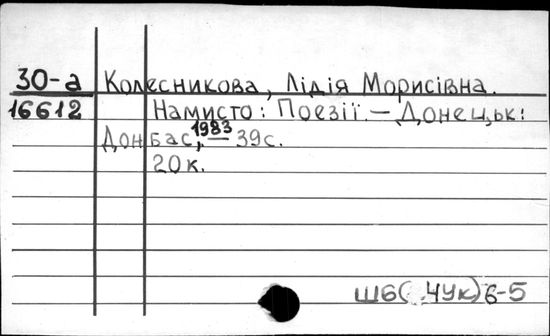 30-а Колесникова, Лідія Морисівна.
16612 Намисто: Поезії. — Донецьк:
Донбас, 1983 — 39с.
20к.
Ш6( 4Ук)6-5